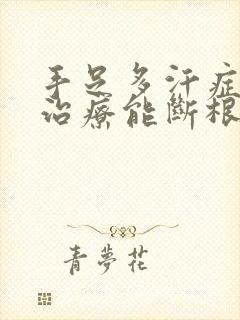 手足多汗症
治療能斷根
青夢花